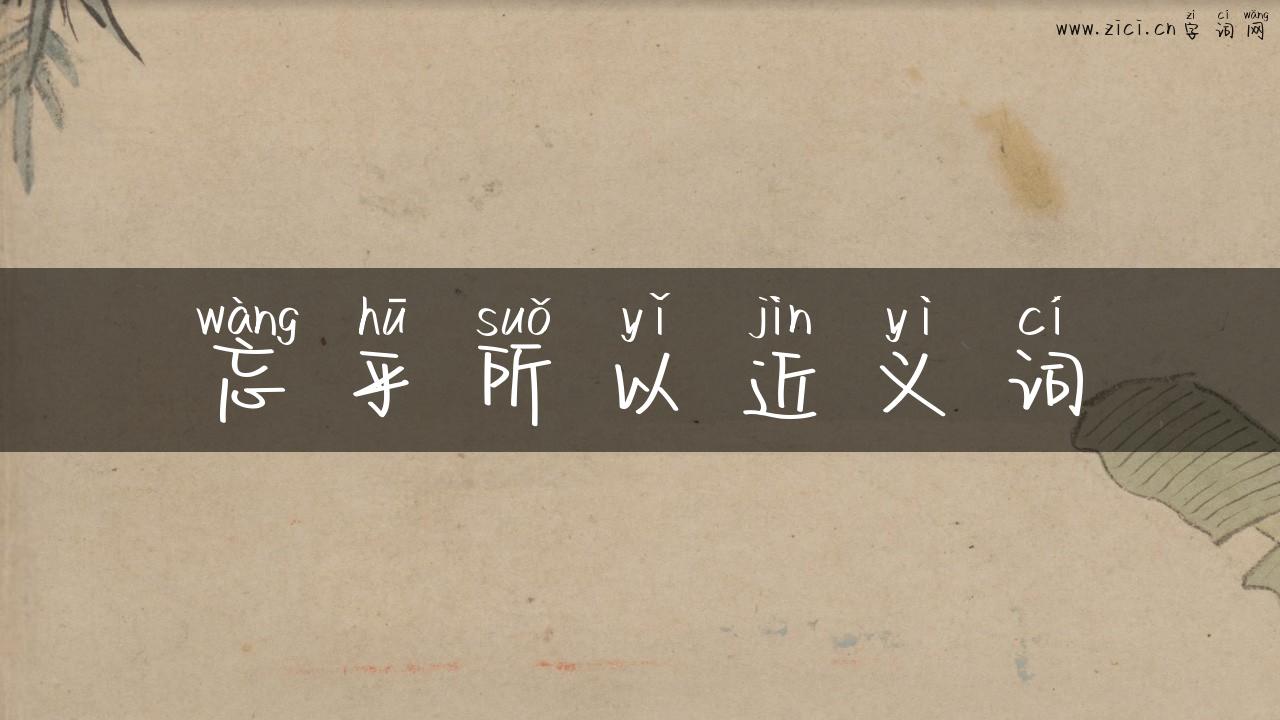 zì cí wǎng
www.zici.cn 字词网
wàng hū suǒ yǐ jìn yì cí
忘乎所以近义词